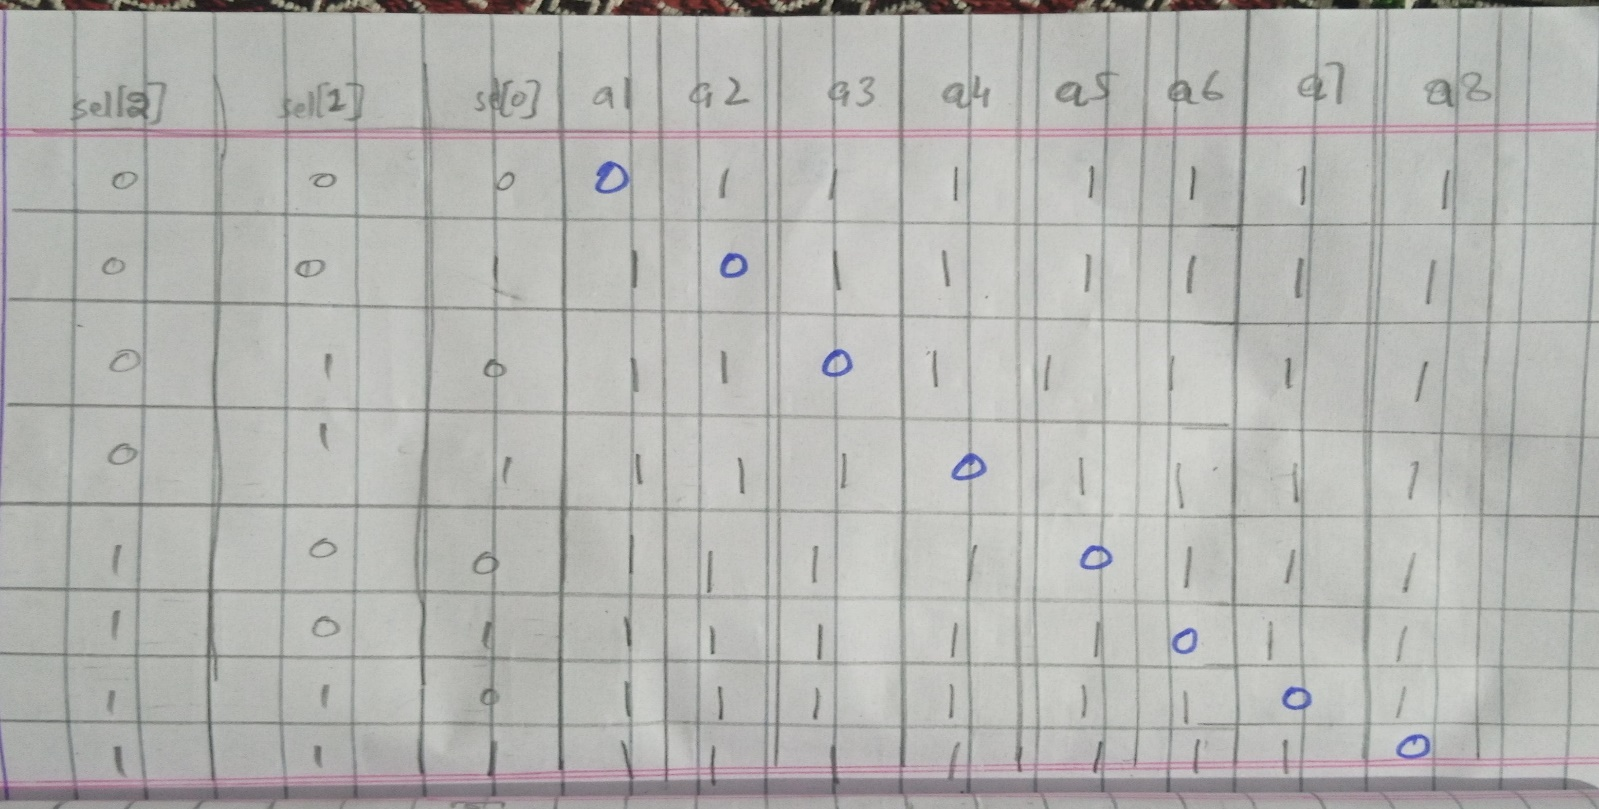 sel[2] sel[1] sel[0] a1 a2 a3 a4 a5 a6 a7 a8
0 0 0 0 1 1 1 1 1 1 1
0 0 1 1 0 1 1 1 1 1 1
0 1 0 1 1 0 1 1 1 1 1
0 1 1 1 1 1 0 1 1 1 1
1 0 0 1 1 1 1 0 1 1 1
1 0 1 1 1 1 1 1 0 1 1
1 1 0 1 1 1 1 1 1 0 1
1 1 1 1 1 1 1 1 1 1 0